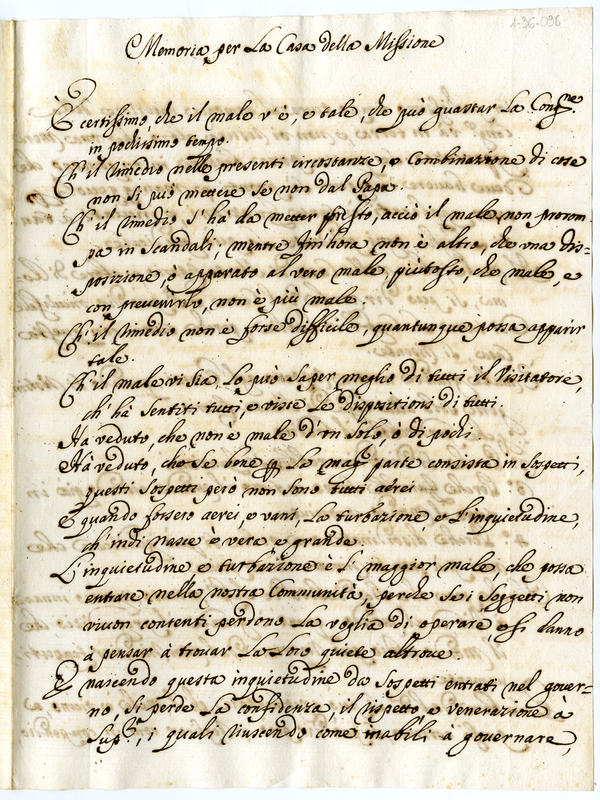 1-36-096
Memoria per La Casa della Missione
È certissimo, che il male v'è, e tale, che può guastar La Congne.
in pochissimo tempo.
Ch'il rimedio nelle presenti circostanze, e Combinazione di cose
non si può mettere se non dal Papa.
Ch'il rimedio s'hà da metter presto, acciò il male non prorom
pa in scandali; mentre finhora non è altro, che una dis=
posizione, o apparato al vero male piutosto, che male, e
con prevenirlo, non è più male.
Ch'il rimedio non è forse difficile, quantunque possa apparir
tale.
Ch'il male vi sia, Lo può saper meglio di tutti il Visitatore,
ch'hà sentiti tutti, e viste Le dispositioni di tutti.
Ha veduto, che non è male d'un solo, ò di pochi.
Hà veduto, che se bene p La magr parte consista in sospetti,
questi sospetti però non sono tutti aerei
E quando fossero aerei, e vani, La turbazione, e L'inquietudine,
ch'indi nasce è vera e grande.
L'inquietudine e turbazione è L' maggior male, che possa
entrare nella nostra Communità, perche se i soggetti non
vivon contenti perdono La voglia di operare, e si danno
à pensar à trovar La Loro quiete altrove.
E nascendo questa inquietudine da sospetti entrati nel gover=
no, si perde La confidenza, il rispetto e venerazione à
Supri, i quali riuscendo come inabili à governare,